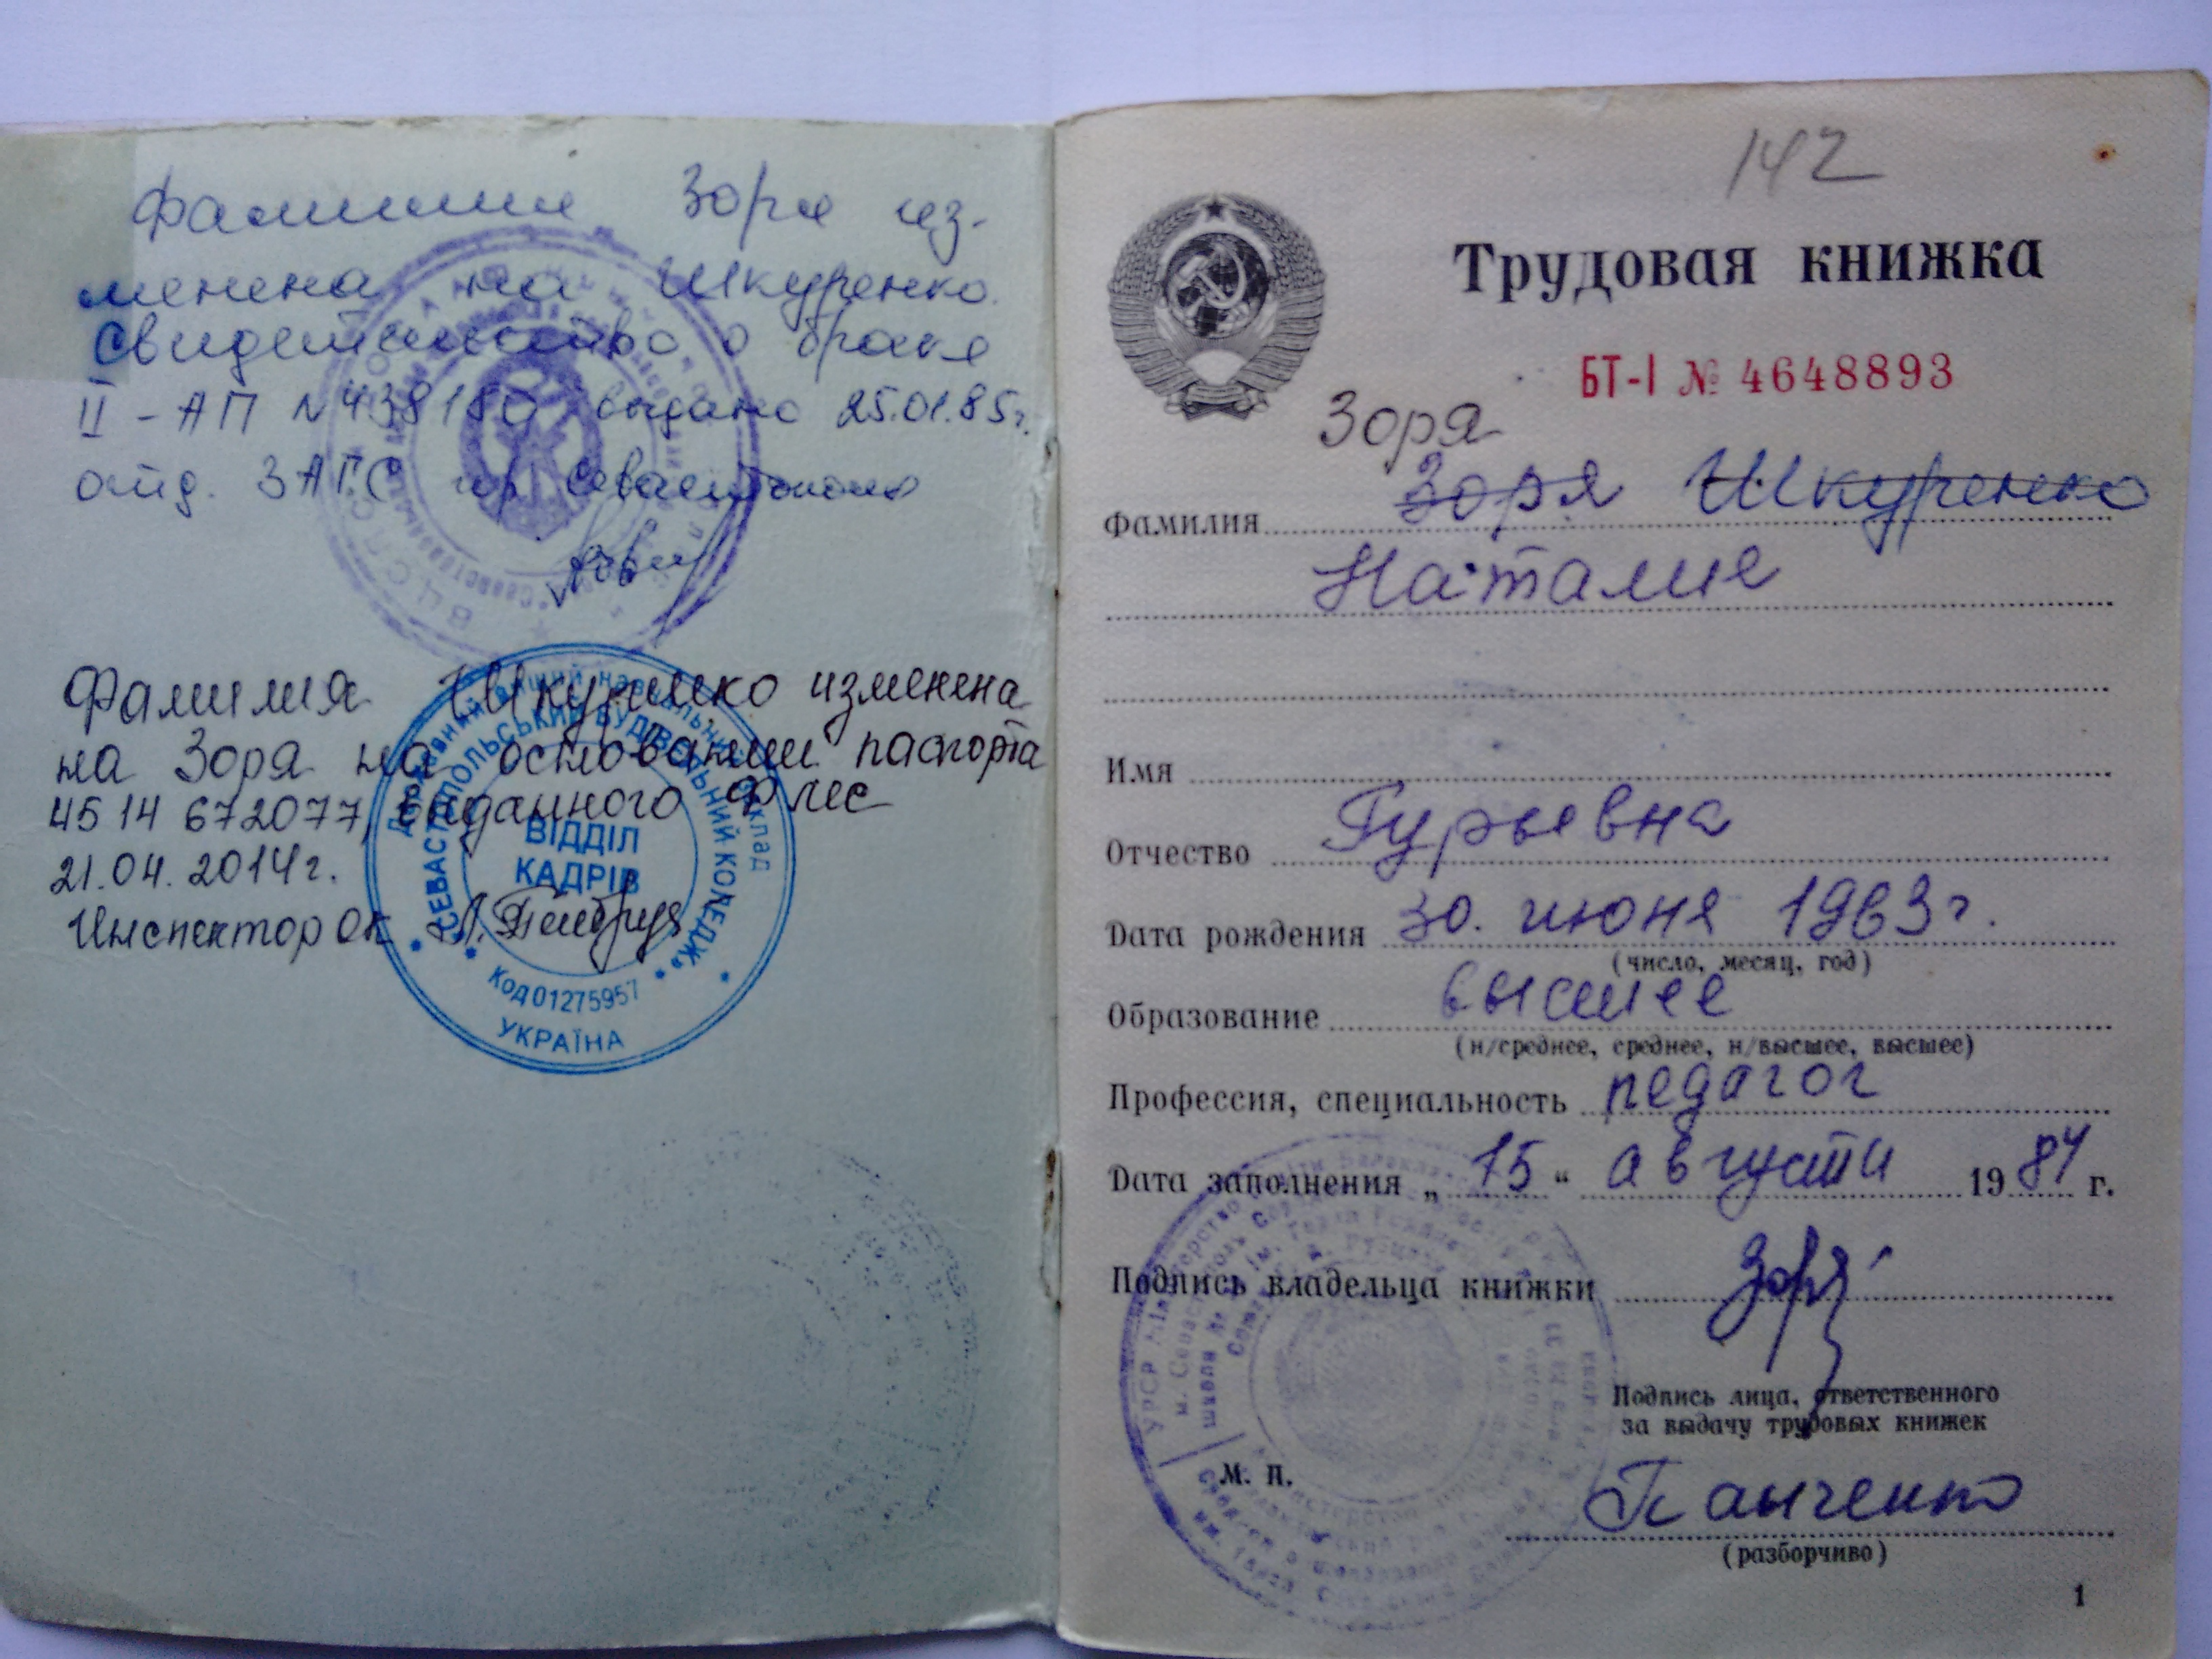 Фамилия Зоря из-
менена на Шкуренко.
Свидетельство о браке
II-АП №438180 выдано 25.01.85г.
отд. ЗАГС гор Севастополя
Фамилия Шкуренко изменена
на Зоря на основании паспорта
45 14 672077, выданного ФМС
21.04.2014г.
Инспектор ОК
Державний вищий навчальний заклад
«СЕВАСТОПОЛЬСЬКИЙ БУДІВЕЛЬНИЙ КОЛЕДЖ»
ВІДДІЛ
КАДРІВ
Код 01275957
УКРАЇНА
142
Трудовая книжка
БТ-I № 4648893
Зоря
Фамилия Зоря Шкуренко
Наталия
Имя
Отчество Гурьевна
Дата рождения 30. июня 1963г.
(число, месяц, год)
Образование высшее
(н/среднее, среднее, н/высшее, высшее)
Профессия, специальность педагог
Дата заполнения „15“ августа 1984 г.
Подпись владельца книжки Зоря
Подпись лица, ответственного
за выдачу трудовых книжек
М. П.
Панченко
(разборчиво)
1